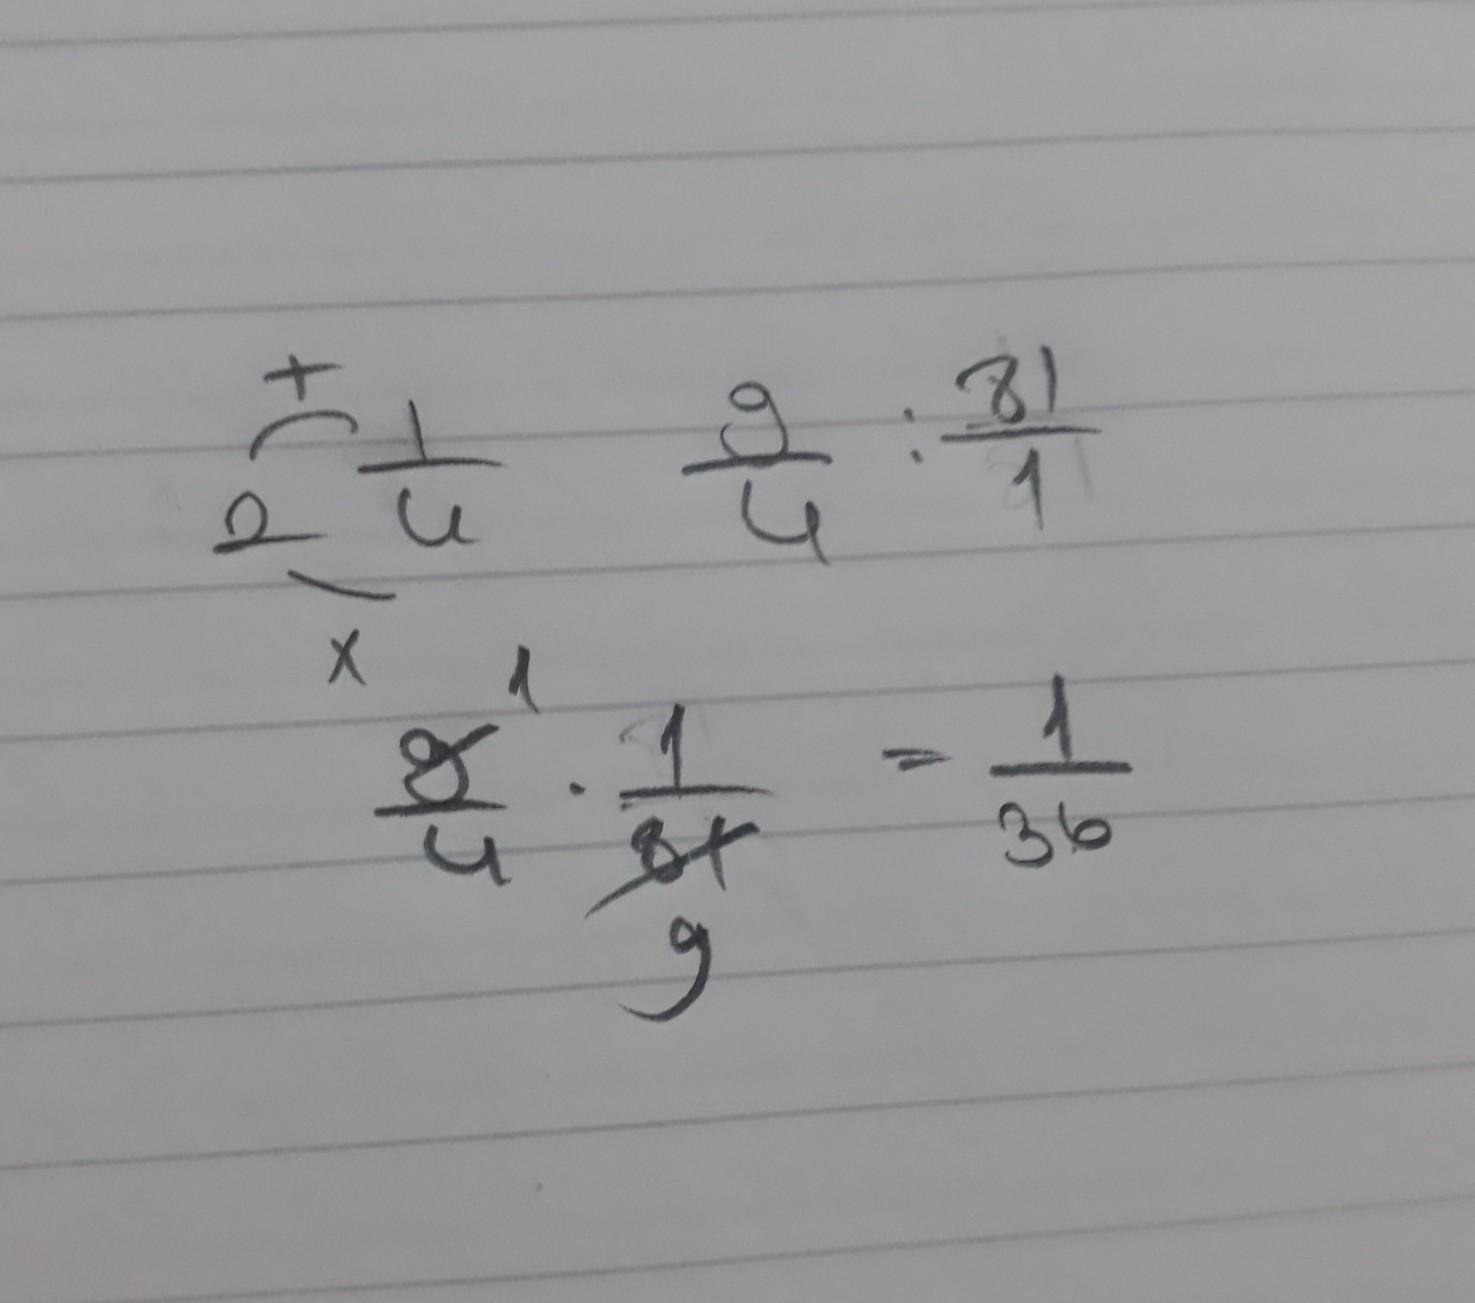 +
2 1/4   9/4 : 81/1
x
9/4 1 · 1/81 9 = 1/36